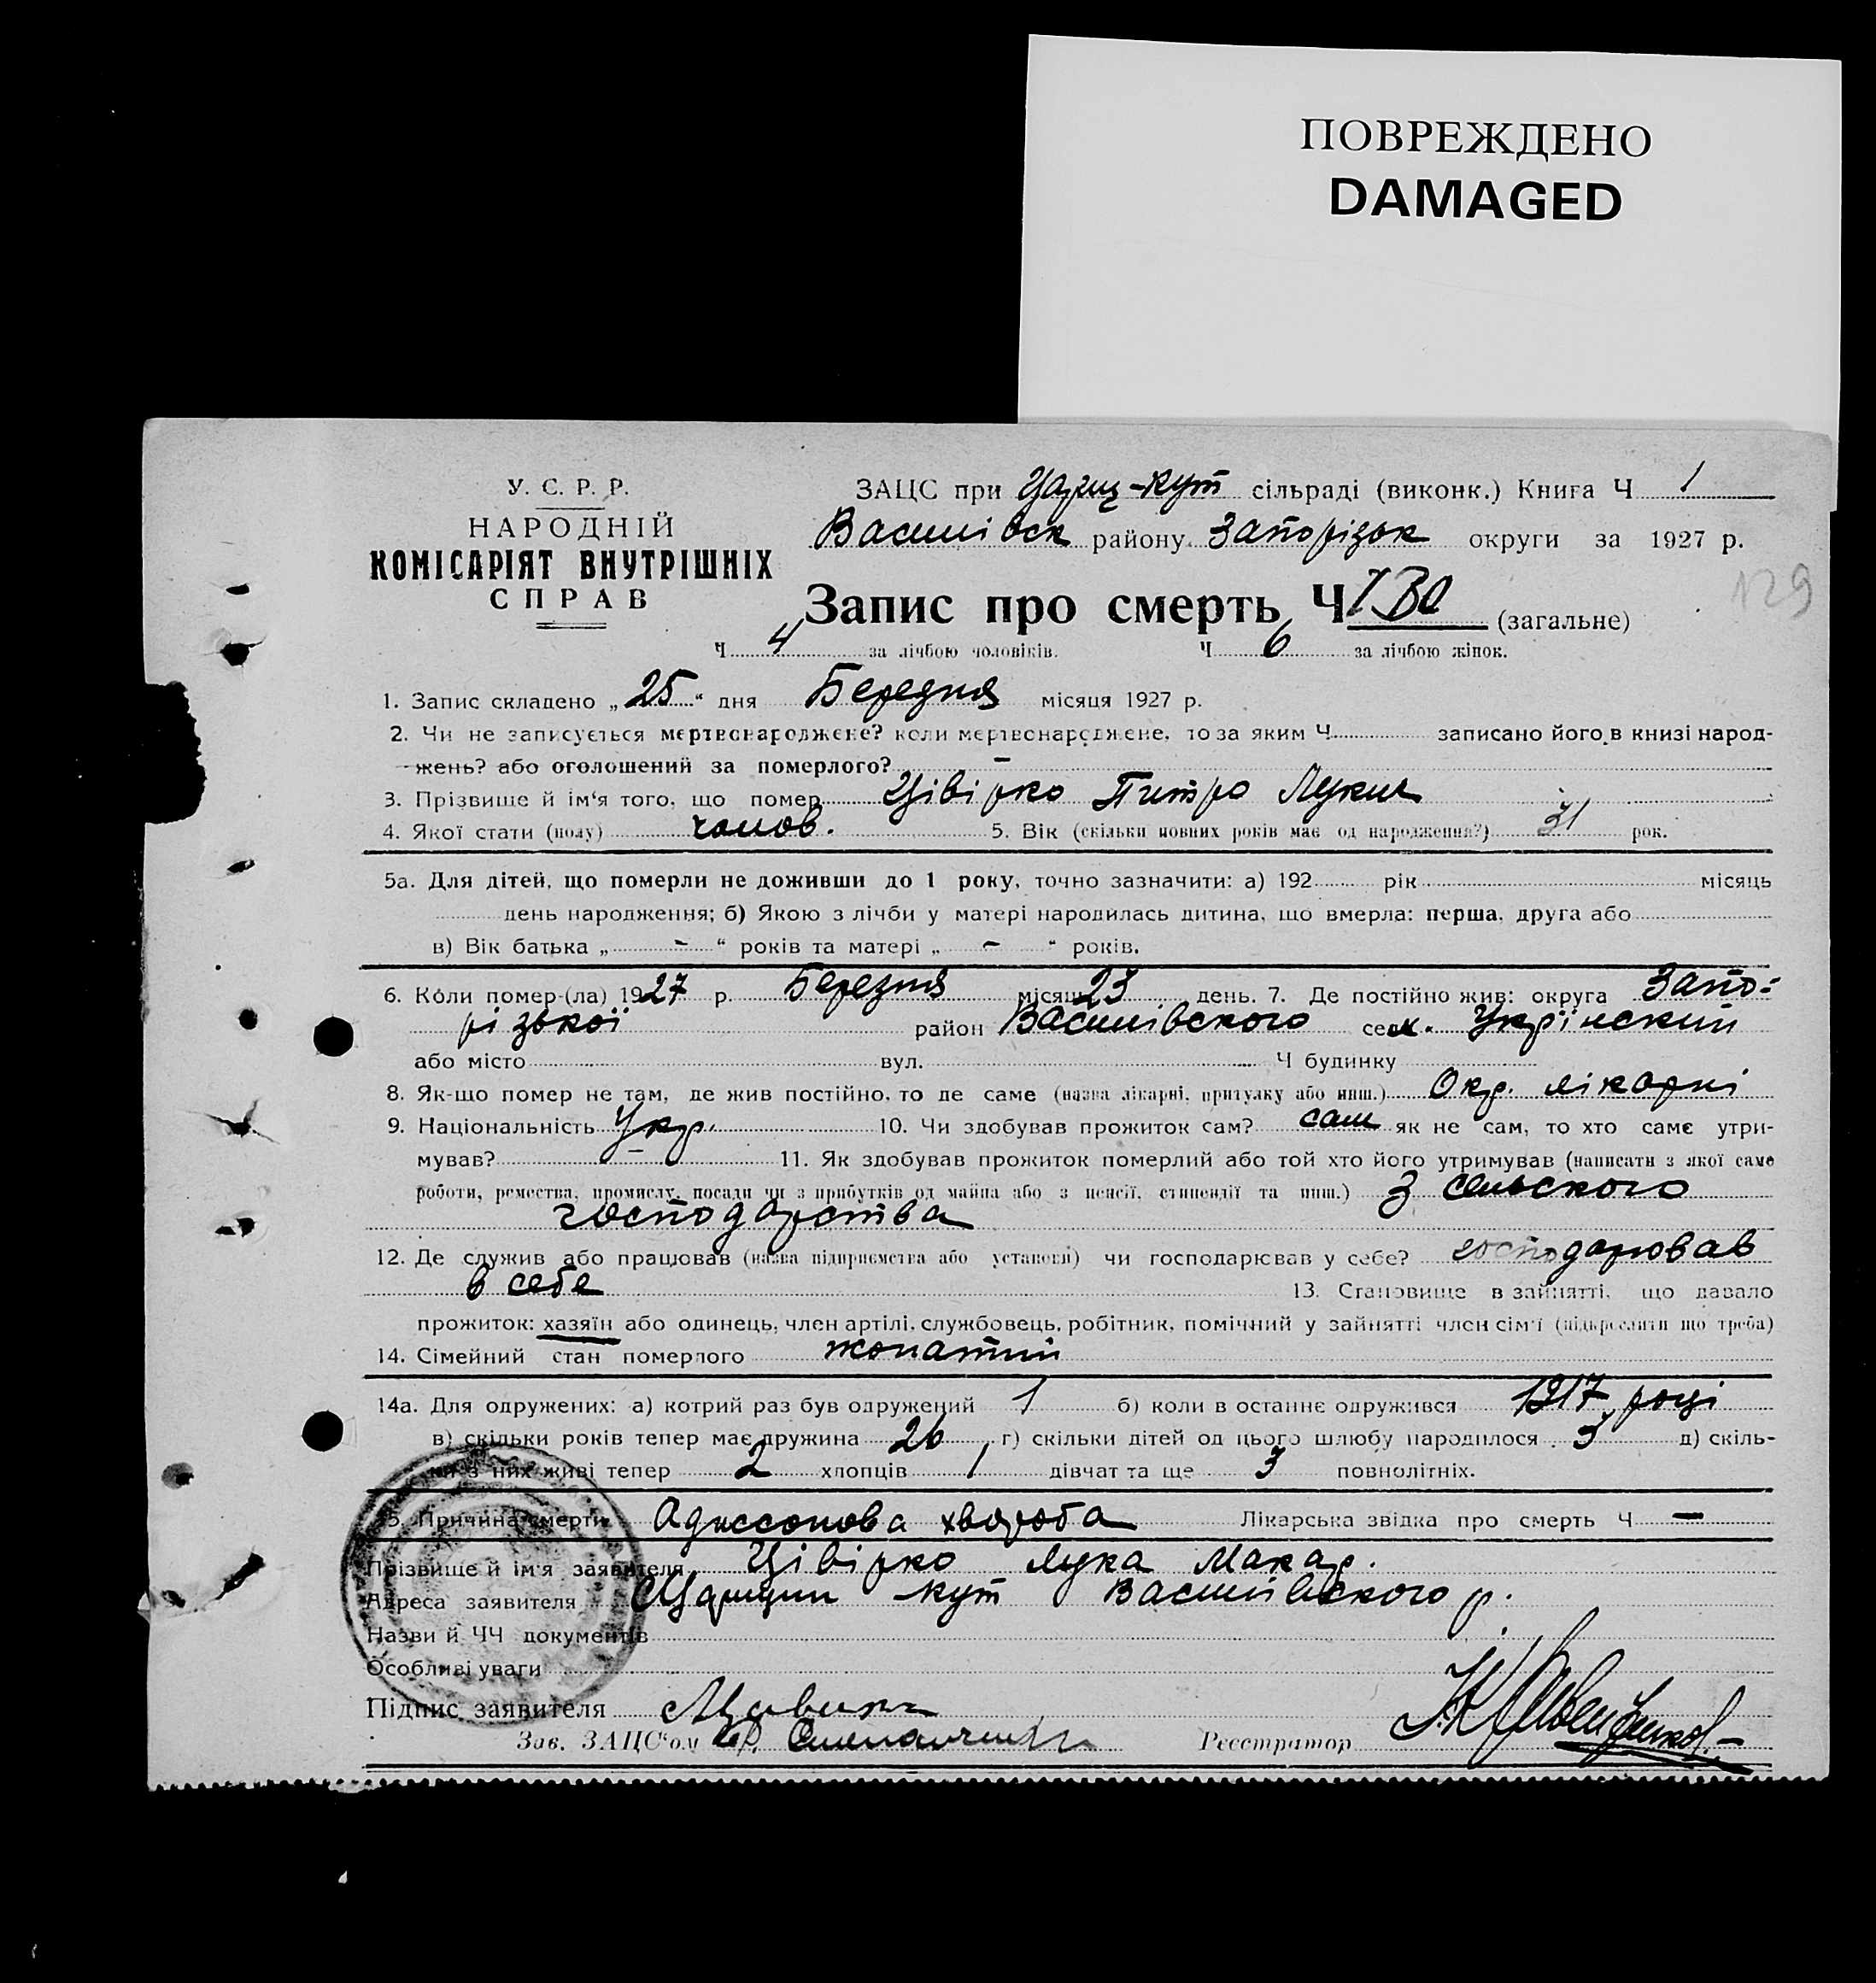 ПОВРЕЖДЕНО
DAMAGED
У. С. Р. Р.
НАРОДНІЙ
КОМІСАРІЯТ ВНУТРІШНІХ
СПРАВ
ЗАЦС при Цариц-Кут сільраді (виконк.) Книга Ч 1
Василівск району Запорізьк округи за 1927 р.
129
Запис про смерть Ч (загальне)
Ч 4 за лічбою чоловіків. Ч 6 за лічбою жінок.
1. Запис складено „25“ дня Березня місяця 1927 р.
2. Чи не записується мертвонароджене? коли мертвонароджене, то за яким Ч записано його в книзі народ-
жень? або оголошений за померлого? –
3. Прізвище й ім‘я того, що помер Цівірко Питро Лукич
4. Якої стати (полу) чолов. 5. Вік (скільки повних років має од народження?) 31 рок.
5а. Для дітей, що померли не доживши до 1 року, точно зазначити: а) 192 рік місяць
день народження; б) Якою з лічби у матері народилась дитина, що вмерла: перша, друга або
в) Вік батька „ – “ років та матері „ – “ років.
6. Коли помер-(ла) 1927 р. Березня місяц 23 день. 7. Де постійно жив: округа Запо-
різької район Василівского сел. Украінский
або місто вул. Ч будинку
8. Як-що помер не там, де жив постійно, то де саме (назва лікарні, притулку або инш.) Окр. лікарні
9. Національність Укр. 10. Чи здобував прожиток сам? сам як не сам, то хто саме утри-
мував? – 11. Як здобував прожиток померлий або той хто його утримував (написати з якої саме
роботи, ремества, промислу, посади чи з прибутків од майна або з пенсії, стипендії та инш.) З сельского
господарства
12. Де служив або працював (назва підприємства або установи) чи господарював у себе? господарював
в себе 13. Становище в зайнятті, що давало
прожиток: хазяїн або одинець, член артілі, службовець, робітник, помічний у зайнятті член сім‘ї (підкреслити що треба)
14. Сімейний стан померлого жонатий
14а. Для одружених: а) котрий раз був одружений 1 б) коли в останнє одружився 1917 році
в) скільки років тепер має дружина 26 г) скільки дітей од цього шлюбу народилося 3 д) скіль-
ки з них живі тепер 2 хлопців 1 дівчат та ще 3 повнолітніх.
15. Причина смерти Адиссонова хвороба Лікарська звідка про смерть Ч —
Прізвище й ім‘я заявителя Цівірко Лука Макар.
Адреса заявителя Царицин Кут Василівского р.
Назви й ЧЧ документів
Особливі уваги
Підпис заявителя
Зав. ЗАЦС‘ом Реєстратор